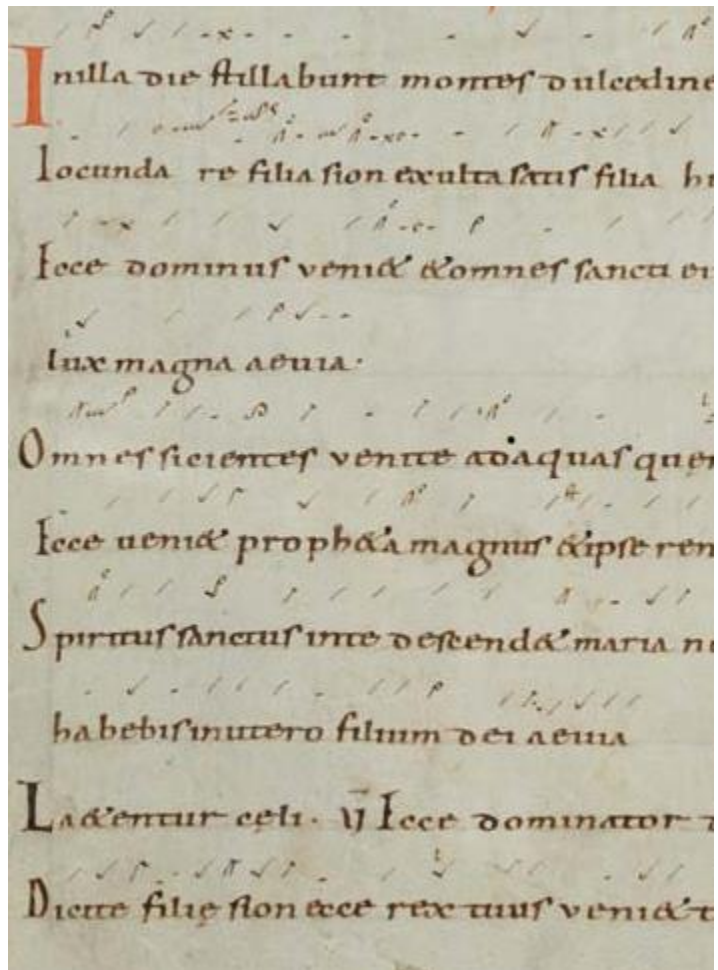 Inilla die stillabunt montes dulcedine
Iocunda re filia sion exulta satis filia hi
Ecce dominus veni& &omnes sancti ei
lux magna aeuia·
Omnes sicientes venite adaquas quer
Ecce ueni& proph&a magnus &ipse ren
Spiritus sanctus inte descend& maria n
habebis inutero filium dei aeuia
La&entur cęli· Ecce dominator d
Dicite filię sion ecce rex tuus veni& t